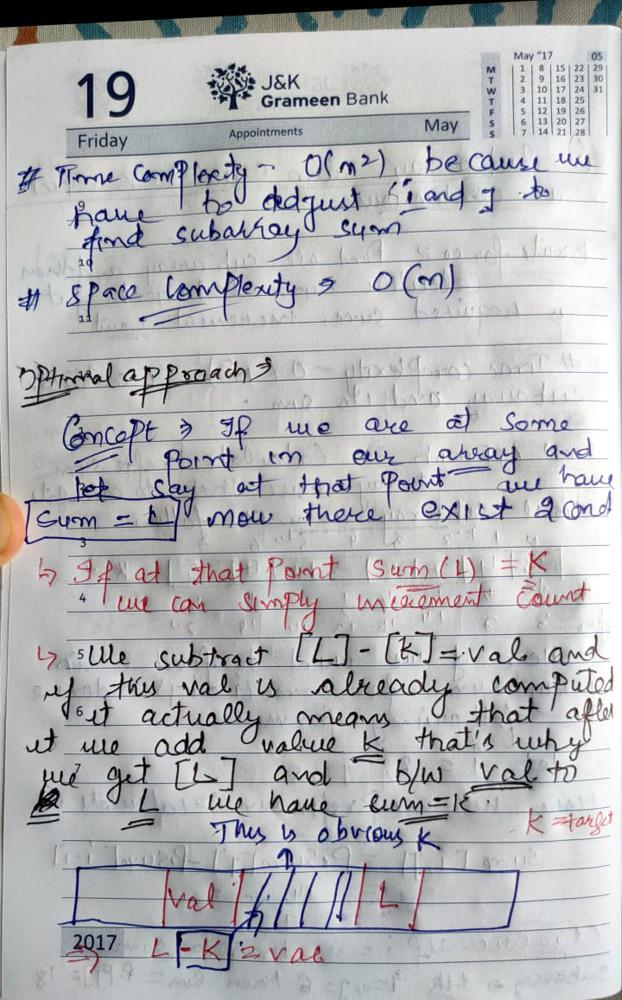 19
J&K
Grameen Bank
May "17 05
M 1 8 15 22 29
T 2 9 16 23 30
W 3 10 17 24 31
T 4 11 18 25
F 5 12 19 26
S 6 13 20 27
S 7 14 21 28
Friday Appointments May
# Time complexity - O(n²) because we
have to adjust i and j to
find subarray sum
10
# Space Complexity → O(n)
11
Optimal approach →
Concept → If we are at some
point in our array and
say at that point we have
sum = L now there exist 2 cond
3
↳ If at that point sum(L) = K
4 we can simply increment count
↳ 5 We subtract [L] - [K] = val and
if this val is already computed
6 it actually means that after
it we add value K that's why
we get [L] and b/w val to
L we have sum = K.
K = target
This is obvious K
val L
2017
⇒ L - K = val